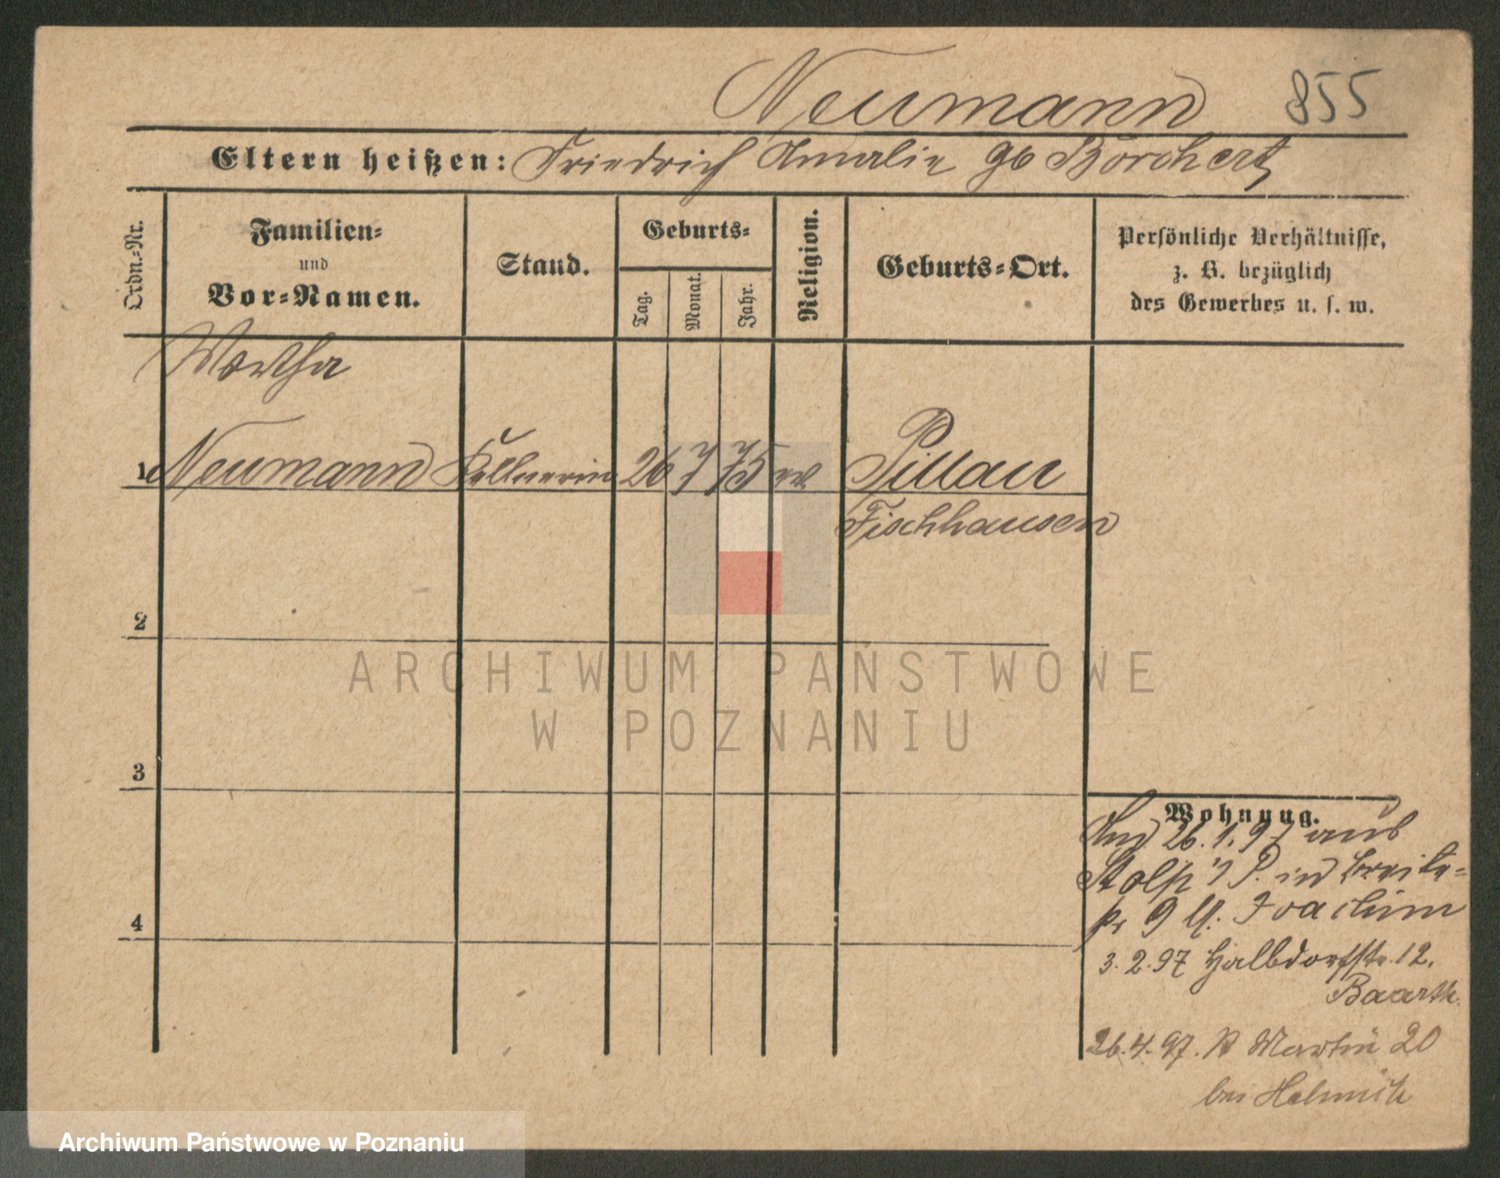 Neumann 855
Eltern heißen: Friedrich Amalie gb Borchert
Ordn.-Nr.
Familien-
und
Vor-Namen.
Stand.
Geburts-
Tag.
Monat.
Jahr.
Religion.
Geburts-Ort.
Persönliche Verhältnisse,
z. B. bezüglich
des Gewerbes u. s. w.
Martha
1 Neumann Kellnerin 26 7 75 ev Pillau
Fischhausen
2
3
4
Wohnung.
26.1.97 aus
Stolp i/P. in Breite-
9 Joachim
3.2.97 Halbdorfstr. 12.
Baarth
26.4.97. St Martin 20
bei
ARCHIWUM PAŃSTWOWE
W POZNANIU
Archiwum Państwowe w Poznaniu